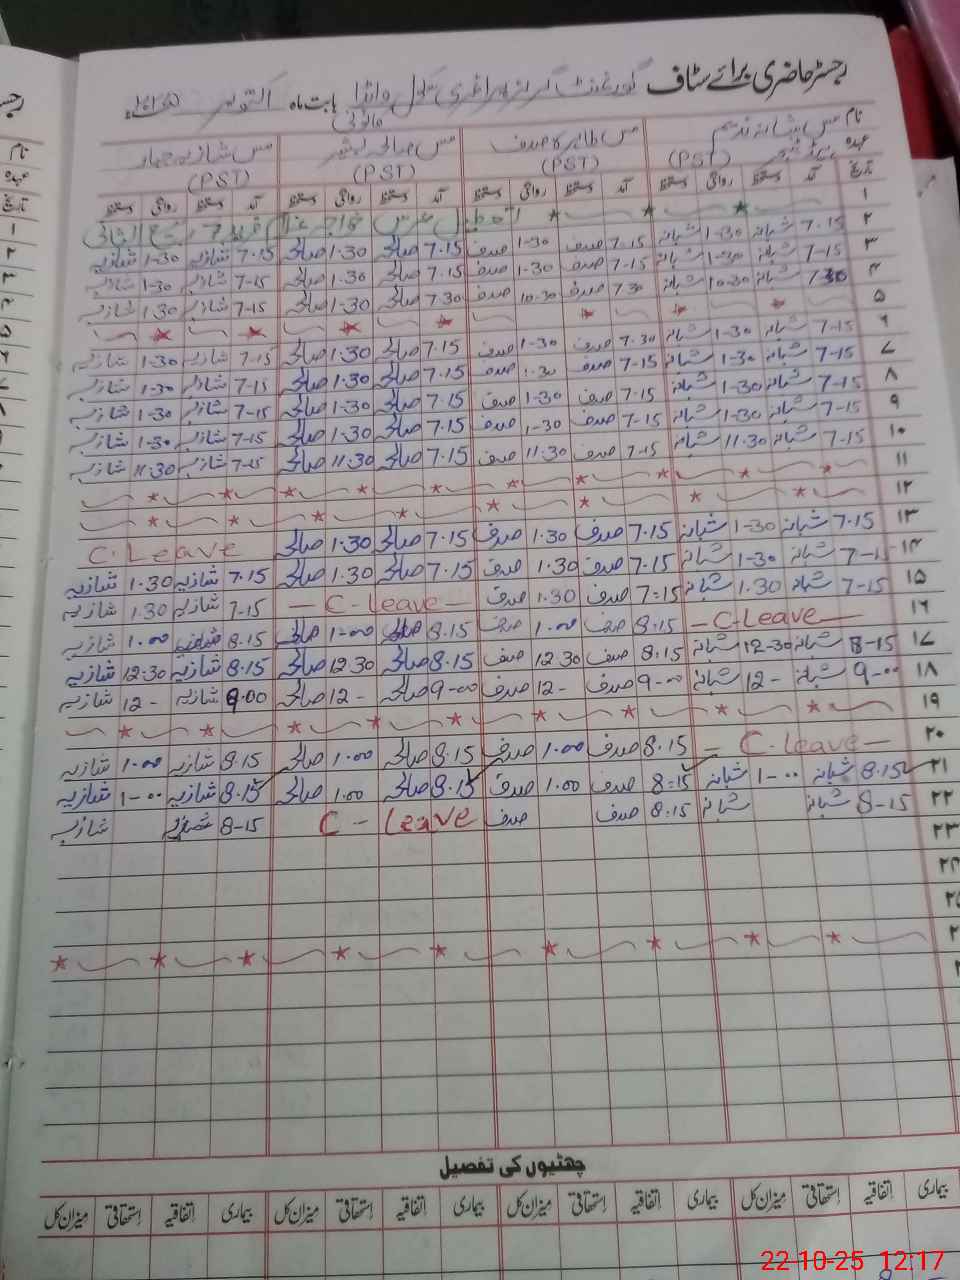 رجسٹر حاضری برائے سٹاف گورنمنٹ گرلز پرائمری سکول بابت ماہ اکتوبر
نام مس شبانہ مس طاہرہ صدف مس صالحہ مس شازیہ
عہدہ (PST) (PST) (PST) (PST)
تاریخ آمد دستخط روانگی دستخط آمد دستخط روانگی دستخط آمد دستخط روانگی دستخط آمد دستخط روانگی دستخط
۱ تعطیل عرس خواجہ غلام فرید
۲ 7.15 شبانہ 1-30 شبانہ 7-15 صدف 1-30 صدف 7.15 صالحہ 1.30 صالحہ 7.15 شازیہ 1-30 شازیہ
۳ 7-15 شبانہ 1-30 شبانہ 7-15 صدف 1-30 صدف 7.15 صالحہ 1.30 صالحہ 7-15 شازیہ 1-30 شازیہ
۴ 7.30 شبانہ 10-30 شبانہ 7.30 صدف 10.30 صدف 7.30 صالحہ 1.30 صالحہ 7-15 شازیہ 1.30 شازیہ
۵
۶ 7-15 شبانہ 1-30 شبانہ 7.30 صدف 1-30 صدف 7.15 صالحہ 1.30 صالحہ 7.15 شازیہ 1-30 شازیہ
۷ 7-15 شبانہ 1-30 شبانہ 7-15 صدف 1.30 صدف 7.15 صالحہ 1.30 صالحہ 7-15 شازیہ 1-30 شازیہ
۸ 7-15 شبانہ 1-30 شبانہ 7.15 صدف 1-30 صدف 7.15 صالحہ 1-30 صالحہ 7-15 شازیہ 1-30 شازیہ
۹ 7-15 شبانہ 1-30 شبانہ 7-15 صدف 1-30 صدف 7.15 صالحہ 1-30 صالحہ 7-15 شازیہ 1-30 شازیہ
۱۰ 7-15 شبانہ 11.30 شبانہ 7-15 صدف 11.30 صدف 7.15 صالحہ 11.30 صالحہ 7-15 شازیہ 11:30 شازیہ
۱۱
۱۲
۱۳ 7.15 شبانہ 1-30 شبانہ 7.15 صدف 1.30 صدف 7.15 صالحہ 1.30 صالحہ C. Leave
۱۴ شبانہ 1-30 شبانہ 7.15 صدف 1.30 صدف 7.15 صالحہ 1.30 صالحہ 7.15 شازیہ 1.30 شازیہ
۱۵ 7-15 شبانہ 1.30 شبانہ 7-15 صدف 1.30 صدف — C-Leave — 7-15 شازیہ 1.30 شازیہ
۱۶ — C-Leave — 8.15 صدف 1.00 صدف 8.15 صالحہ 1-00 صالحہ 8.15 شازیہ 1.00 شازیہ
۱۷ 8-15 شبانہ 12-30 شبانہ 8.15 صدف 12.30 صدف 8.15 صالحہ 12.30 صالحہ 8.15 شازیہ 12:30 شازیہ
۱۸ 9-00 شبانہ 12- شبانہ 9-00 صدف 12- صدف 9-00 صالحہ 12- صالحہ 9.00 شازیہ 12- شازیہ
۱۹
۲۰ — C. Leave — 8.15 صدف 1.00 صدف 8.15 صالحہ 1.00 صالحہ 8.15 شازیہ 1.00 شازیہ
۲۱ 8.15 شبانہ 1-00 شبانہ 8:15 صدف 1.00 صدف 8.15 صالحہ 1.00 صالحہ 8.15 شازیہ 1-00 شازیہ
۲۲ 8-15 شبانہ شبانہ 8.15 صدف صدف C - Leave 8-15 شازیہ شازیہ
۲۳
۲۴
۲۵
چھٹیوں کی تفصیل
بیماری اتفاقیہ استحقاقی میزان کل بیماری اتفاقیہ استحقاقی میزان کل بیماری اتفاقیہ استحقاقی میزان کل بیماری اتفاقیہ استحقاقی میزان کل
22-10-25 12:17